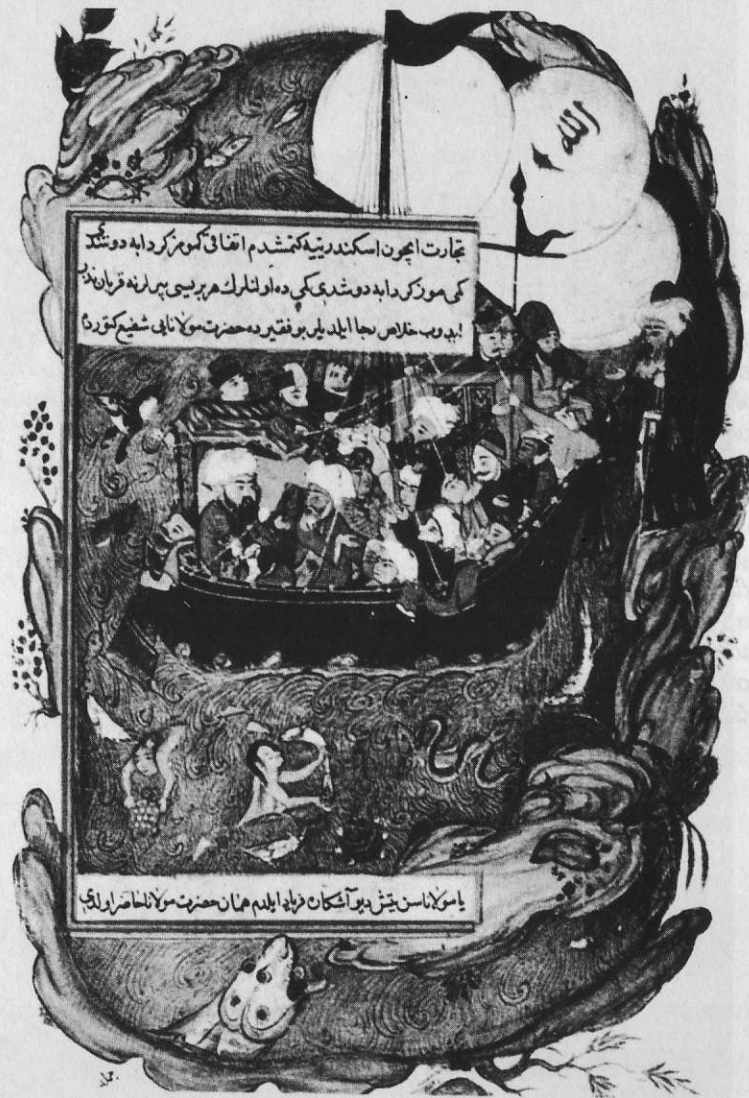 الله
تجارت ایچون اسکندریّیه کتمشدم اتفاقی کمومز کردابه دوشدی
کمی موز کردابه دوشدی کمی ده اولانلرك هر بریسی پیرلرنه قربان نذر
ایدوب خلاص رجا ایلدیلر بو فقیر ده حضرت مولانایی شفیع کتوردم
یا مولانا سن یتش دیو آشکان فریاد ایلدم همان حضرت مولانا حاضر اولدی